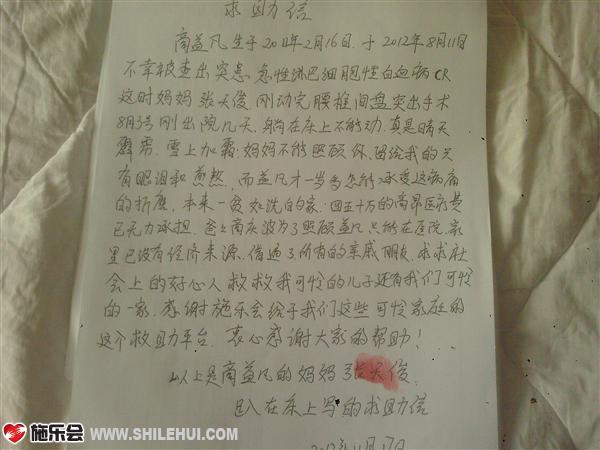 求助信
商益凡生于2011年2月16日.于2012年8月11日
不幸被查出突患 急性淋巴细胞性白血病CR
这时妈妈 张天俊 刚动完腰椎间盘突出手术
8月3号刚出院几天.躺在床上不能动.真是晴天
霹雳.雪上加霜.妈妈不能照顾你.留给我的只
有眼泪和煎熬.而益凡才一岁多怎能承受这病痛
的折磨.本来一贫如洗的家.四五十万的高昂医疗费
已无力承担.爸爸商庆波为了照顾益凡只能在医院.家
里已没有经济来源.借遍了所有的亲戚朋友.求求社
会上的好心人救救我可怜的儿子还有我们可怜
的一家.感谢施乐会给于我们这些可怜家庭的
这个救助平台.衷心感谢大家的帮助!
以上是商益凡的妈妈 张天俊.
趴在床上写的求助信
2012年11月17日
施乐会 WWW.SHILEHUI.COM